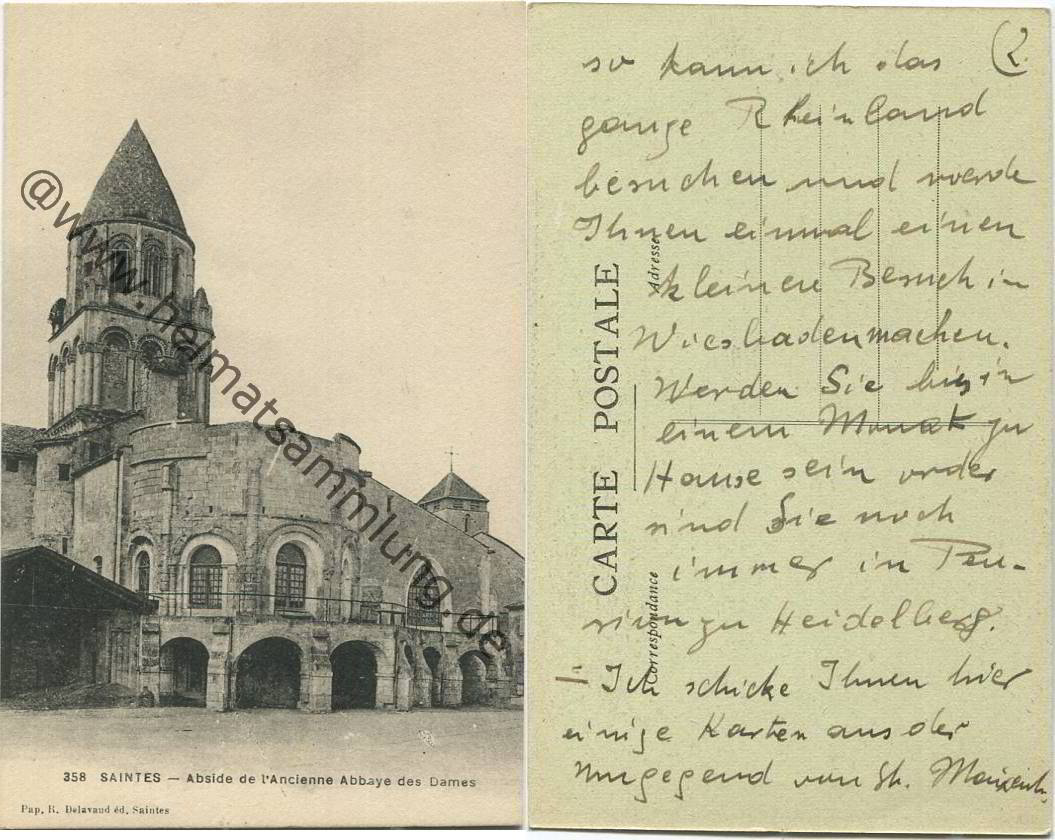 @www.heimatsammlung.de
358 SAINTES — Abside de l'Ancienne Abbaye des Dames
Pap. R. Delavaud éd. Saintes
(2.
so kann ich das
ganze Rheinland
besuchen und werde
Ihnen einmal einen
kleinen Besuch in
Wiesbaden machen.
Werden Sie bis in
einem Monat zu
Hause sein oder
sind Sie noch
immer in Pen-
sion zu Heidelberg.
Ich schicke Ihnen hier
einige Karten aus der
Umgegend von St. Maixent.
CARTE POSTALE
Adresse
Correspondance